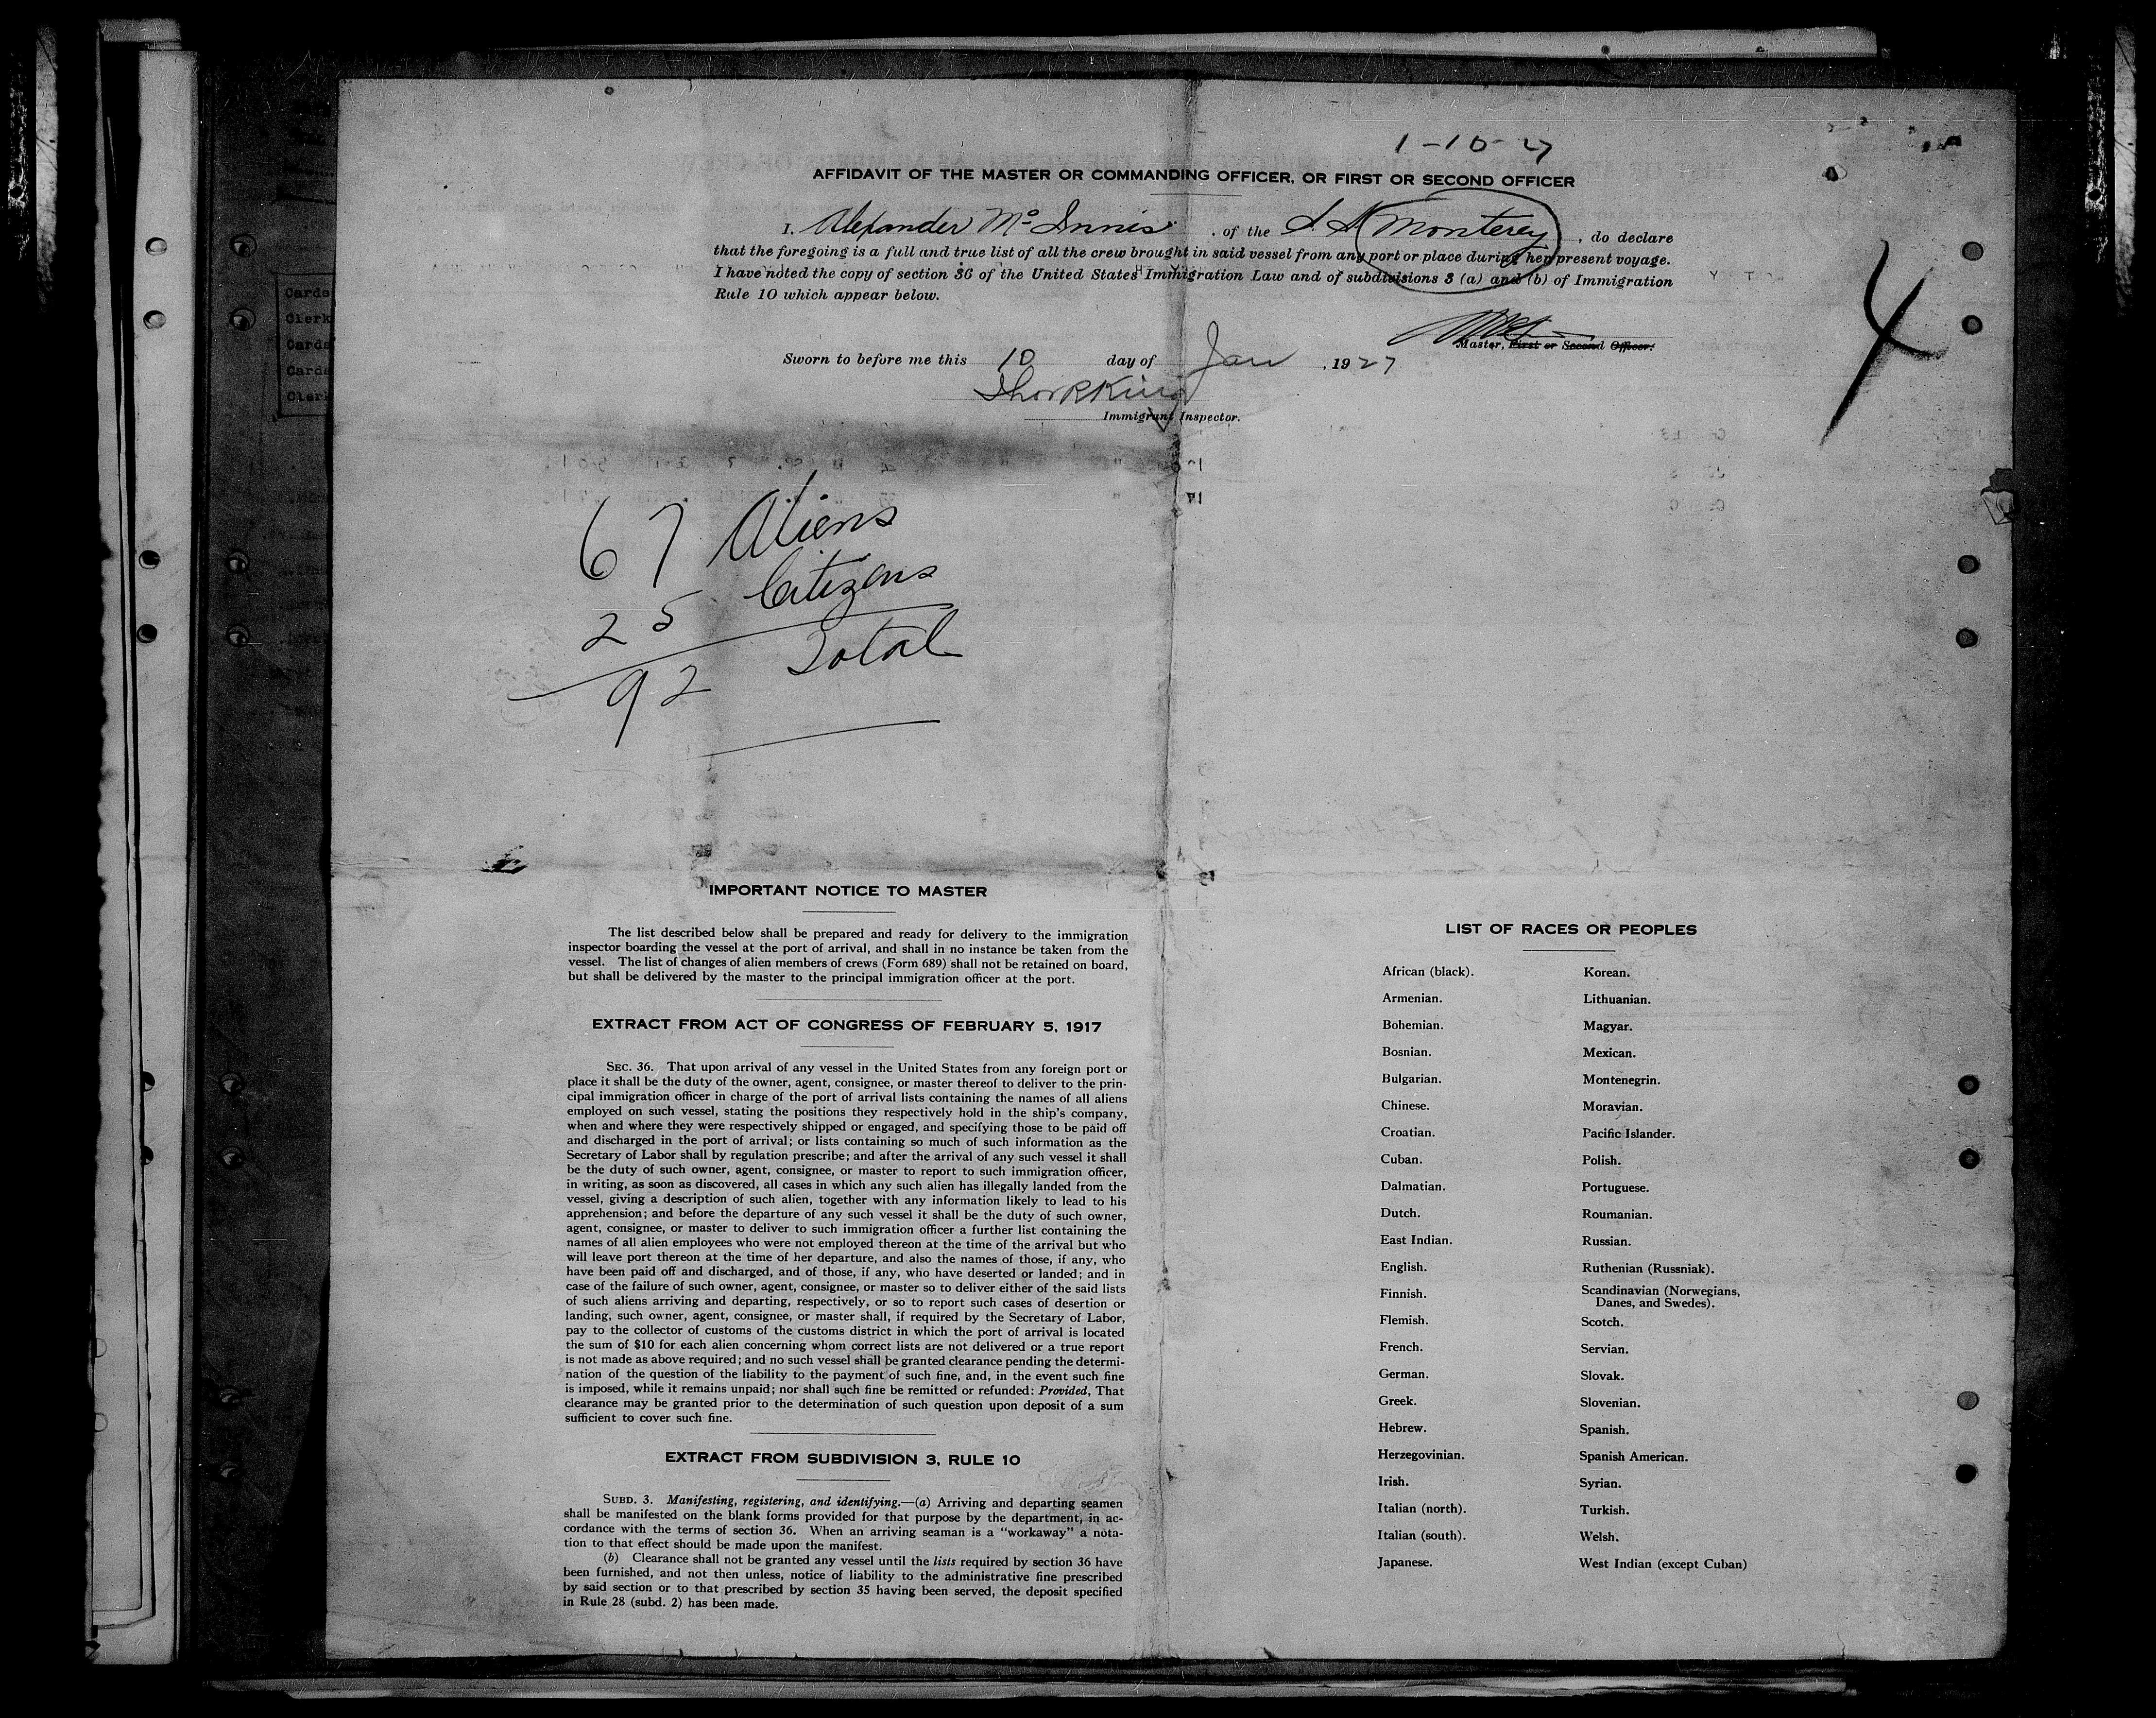 1-10-27
AFFIDAVIT OF THE MASTER OR COMMANDING OFFICER, OR FIRST OR SECOND OFFICER
I, Alexander McInnis, of the S.S. Monterey, do declare
that the foregoing is a full and true list of all the crew brought in said vessel from any port or place during her present voyage.
I have noted the copy of section 36 of the United States Immigration Law and of subdivisions 3 (a) and (b) of Immigration
Rule 10 which appear below.
4
Master, First or Second Officer.
Sworn to before me this 10 day of Jan, 1927
Immigrant Inspector.
Cards
Clerk
Cards
Cards
Clerk
67 Aliens
25 Citizens
92 Total
IMPORTANT NOTICE TO MASTER
The list described below shall be prepared and ready for delivery to the immigration
inspector boarding the vessel at the port of arrival, and shall in no instance be taken from the
vessel. The list of changes of alien members of crews (Form 689) shall not be retained on board,
but shall be delivered by the master to the principal immigration officer at the port.
EXTRACT FROM ACT OF CONGRESS OF FEBRUARY 5, 1917
SEC. 36. That upon arrival of any vessel in the United States from any foreign port or
place it shall be the duty of the owner, agent, consignee, or master thereof to deliver to the prin-
cipal immigration officer in charge of the port of arrival lists containing the names of all aliens
employed on such vessel, stating the positions they respectively hold in the ship's company,
when and where they were respectively shipped or engaged, and specifying those to be paid off
and discharged in the port of arrival; or lists containing so much of such information as the
Secretary of Labor shall by regulation prescribe; and after the arrival of any such vessel it shall
be the duty of such owner, agent, consignee, or master to report to such immigration officer,
in writing, as soon as discovered, all cases in which any such alien has illegally landed from the
vessel, giving a description of such alien, together with any information likely to lead to his
apprehension; and before the departure of any such vessel it shall be the duty of such owner,
agent, consignee, or master to deliver to such immigration officer a further list containing the
names of all alien employees who were not employed thereon at the time of the arrival but who
will leave port thereon at the time of her departure, and also the names of those, if any, who
have been paid off and discharged, and of those, if any, who have deserted or landed; and in
case of the failure of such owner, agent, consignee, or master so to deliver either of the said lists
of such aliens arriving and departing, respectively, or so to report such cases of desertion or
landing, such owner, agent, consignee, or master shall, if required by the Secretary of Labor,
pay to the collector of customs of the customs district in which the port of arrival is located
the sum of $10 for each alien concerning whom correct lists are not delivered or a true report
is not made as above required; and no such vessel shall be granted clearance pending the determi-
nation of the question of the liability to the payment of such fine, and, in the event such fine
is imposed, while it remains unpaid; nor shall such fine be remitted or refunded: Provided, That
clearance may be granted prior to the determination of such question upon deposit of a sum
sufficient to cover such fine.
EXTRACT FROM SUBDIVISION 3, RULE 10
SUBD. 3. Manifesting, registering, and identifying.—(a) Arriving and departing seamen
shall be manifested on the blank forms provided for that purpose by the department, in ac-
cordance with the terms of section 36. When an arriving seaman is a "workaway" a nota-
tion to that effect should be made upon the manifest.
(b) Clearance shall not be granted any vessel until the lists required by section 36 have
been furnished, and not then unless, notice of liability to the administrative fine prescribed
by said section or to that prescribed by section 35 having been served, the deposit specified
in Rule 28 (subd. 2) has been made.
LIST OF RACES OR PEOPLES
African (black).
Armenian.
Bohemian.
Bosnian.
Bulgarian.
Chinese.
Croatian.
Cuban.
Dalmatian.
Dutch.
East Indian.
English.
Finnish.
Flemish.
French.
German.
Greek.
Hebrew.
Herzegovinian.
Irish.
Italian (north).
Italian (south).
Japanese.
Korean.
Lithuanian.
Magyar.
Mexican.
Montenegrin.
Moravian.
Pacific Islander.
Polish.
Portuguese.
Roumanian.
Russian.
Ruthenian (Russniak).
Scandinavian (Norwegians,
Danes, and Swedes).
Scotch.
Servian.
Slovak.
Slovenian.
Spanish.
Spanish American.
Syrian.
Turkish.
Welsh.
West Indian (except Cuban)